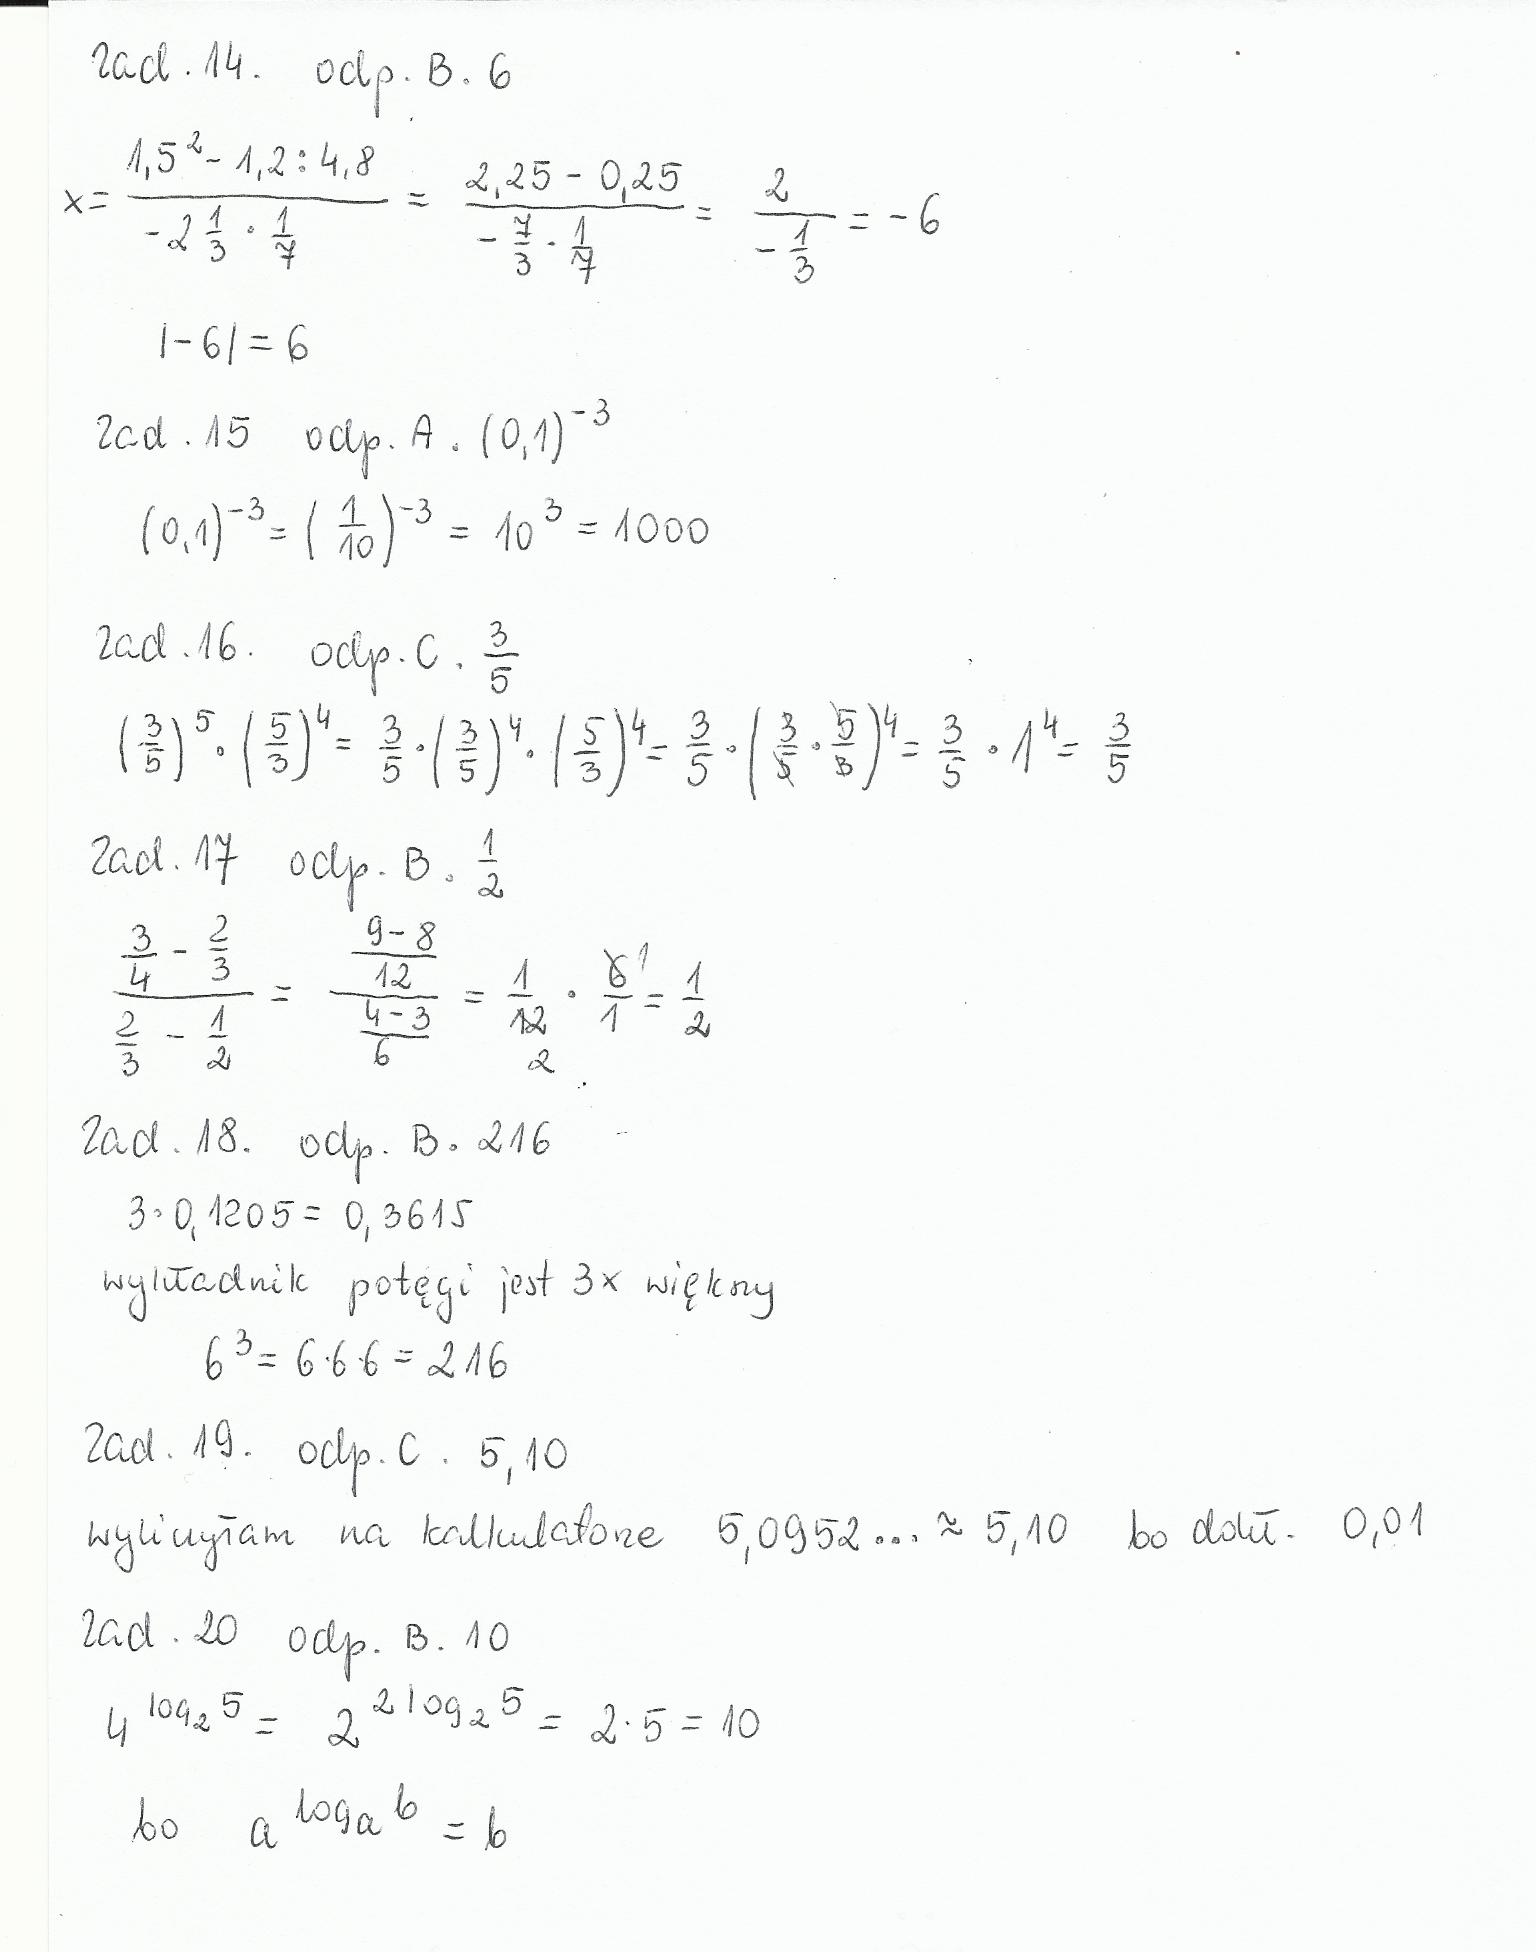 zad. 14. odp. B. 6
x = (1,5² - 1,2 : 4,8)/(-2 1/3 · 1/7) = (2,25 - 0,25)/(-7/3 · 1/7) = 2/(-1/3) = -6
|-6| = 6
zad. 15 odp. A. (0,1)⁻³
(0,1)⁻³ = (1/10)⁻³ = 10³ = 1000
zad. 16. odp. C. 3/5
(3/5)⁵ · (5/3)⁴ = 3/5 · (3/5)⁴ · (5/3)⁴ = 3/5 · (3/5 · 5/3)⁴ = 3/5 · 1⁴ = 3/5
zad. 17 odp. B. 1/2
(3/4 - 2/3)/(2/3 - 1/2) = ((9-8)/12)/((4-3)/6) = 1/12 · 6/1 = 1/2
1
2
zad. 18. odp. B. 216
3·0,1205 = 0,3615
wykładnik potęgi jest 3x większy
6³ = 6·6·6 = 216
zad. 19. odp. C. 5,10
wyliczyłam na kalkulatorze 5,0952... ≈ 5,10 bo dokł. 0,01
zad. 20 odp. B. 10
4^(log₂ 5) = 2^(2 log₂ 5) = 2·5 = 10
bo a^(logₐ b) = b